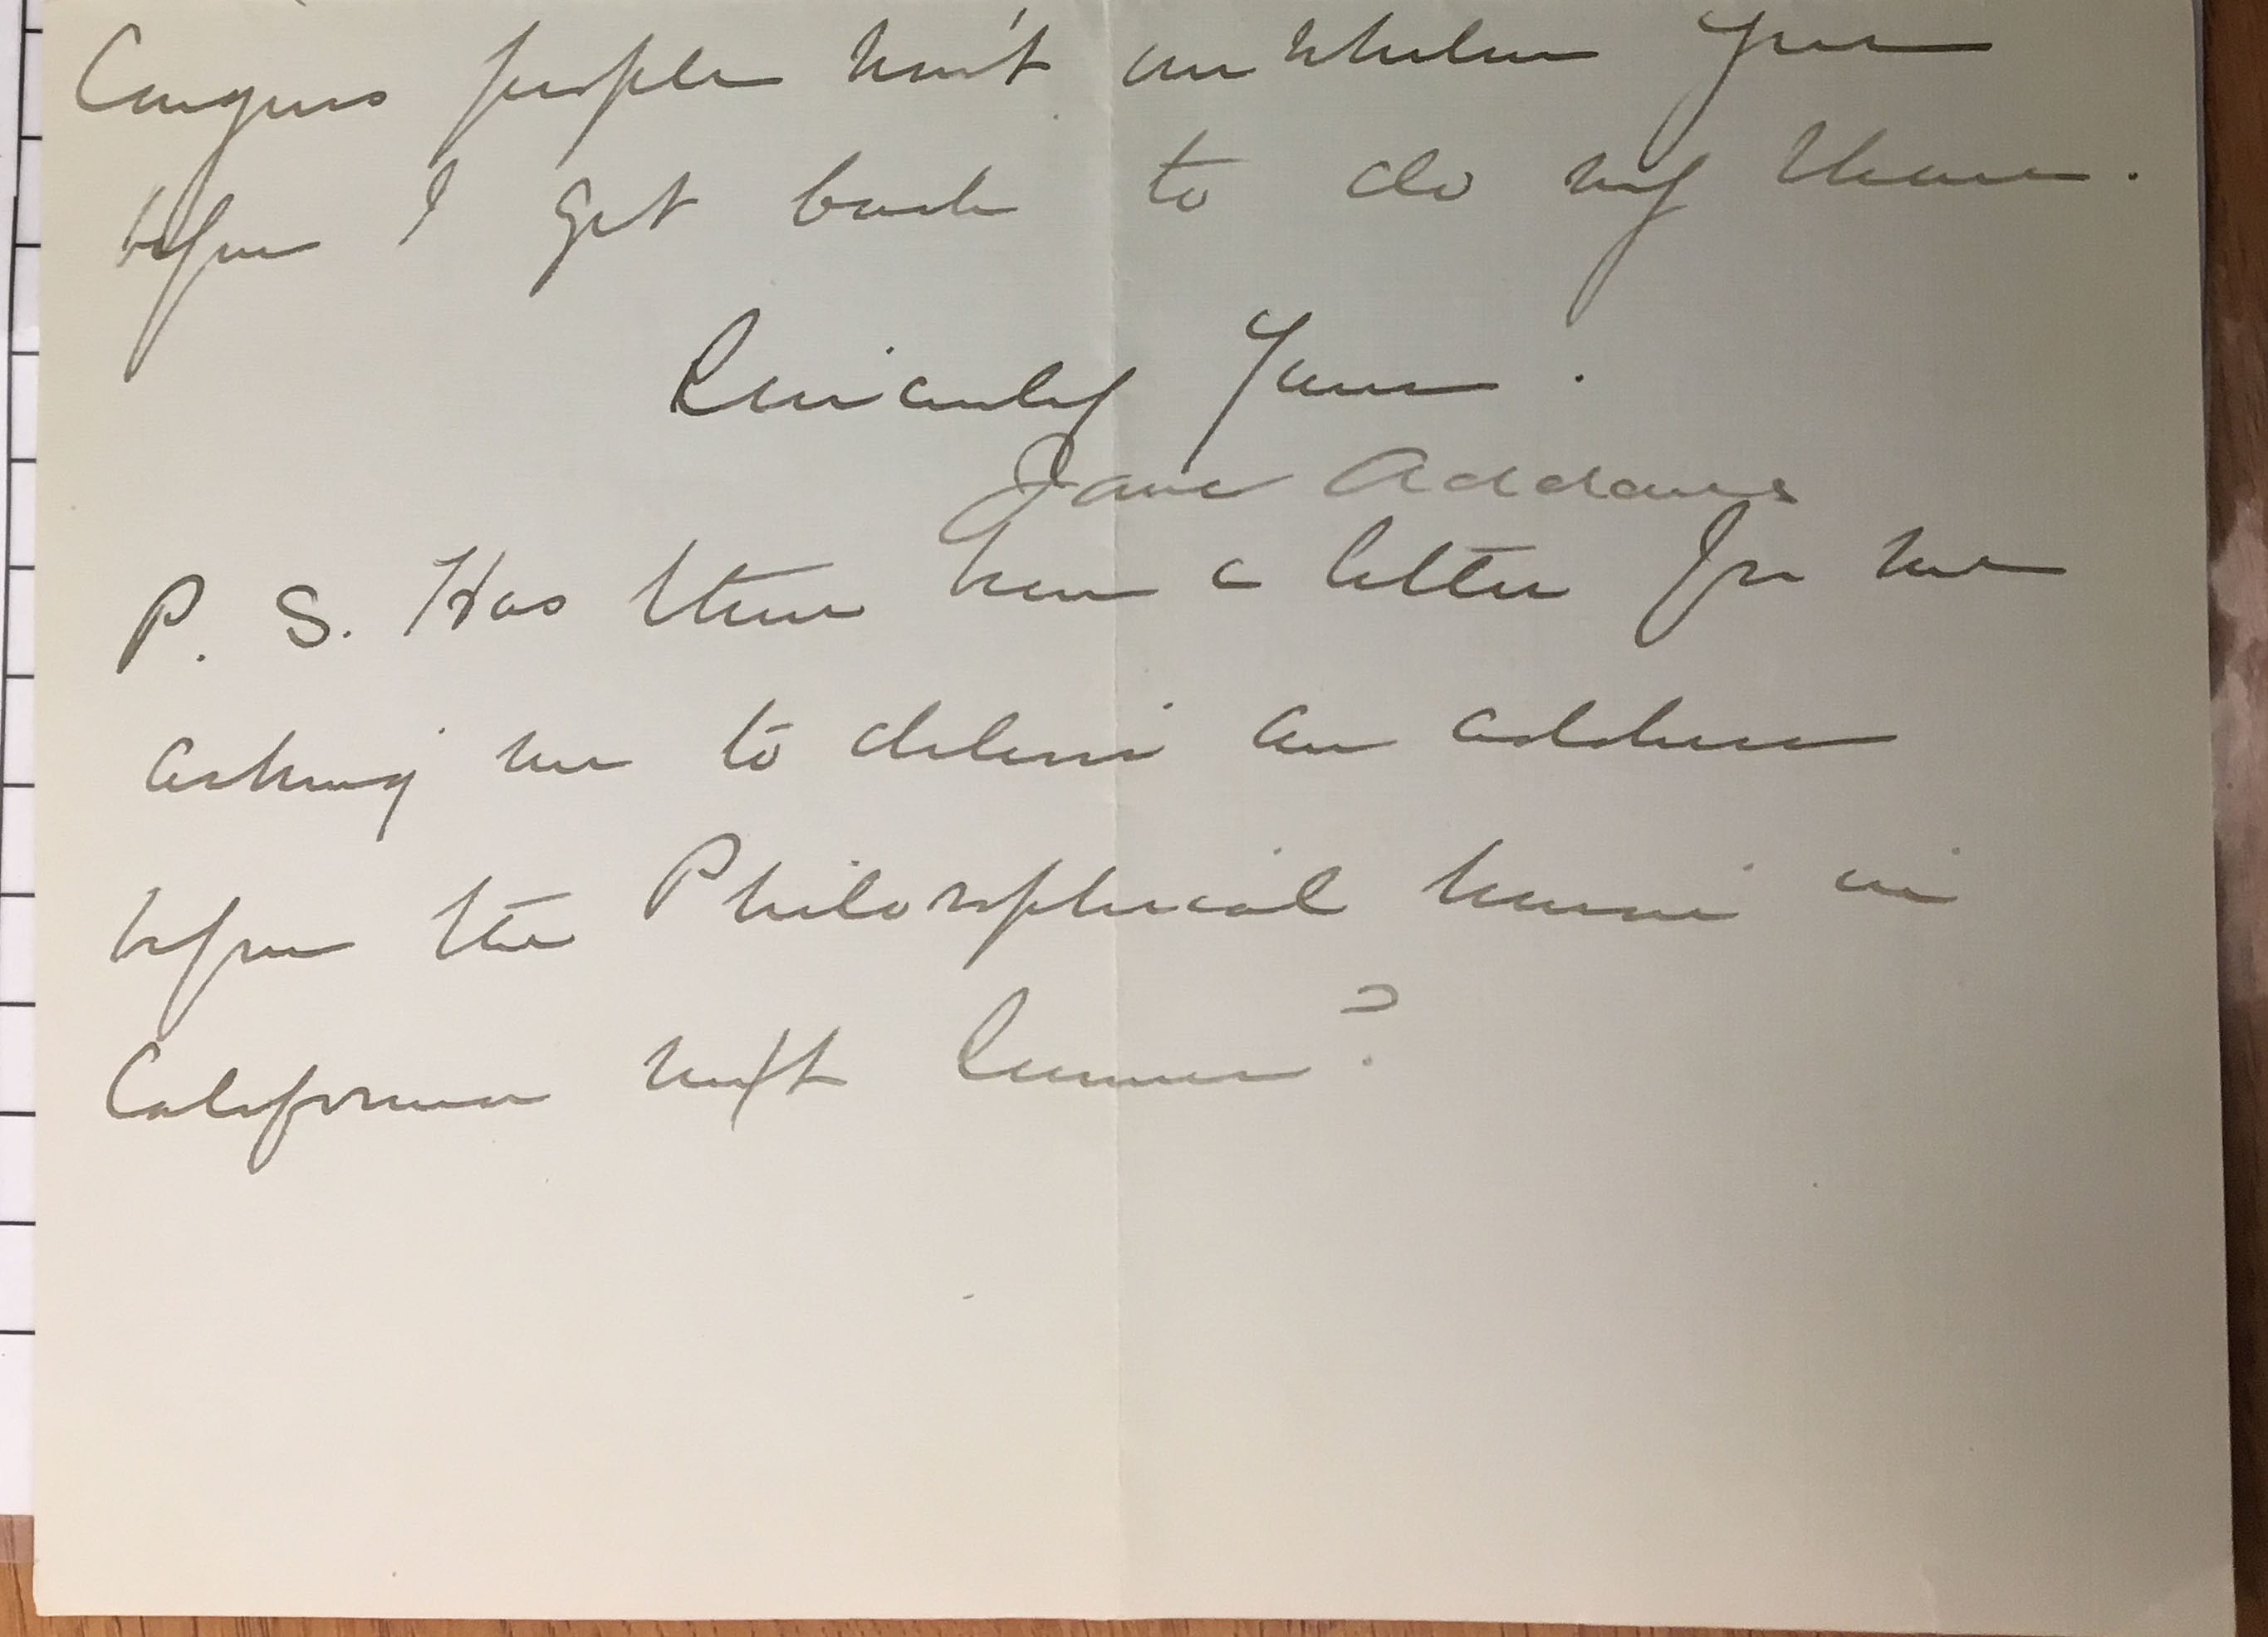 Congress people won't overwhelm you
before I get back to do my share.
Sincerely Yours.
Jane Addams
P. S. Has there been a letter for me
asking me to deliver an address
before the Philosophical Union in
California next summer?